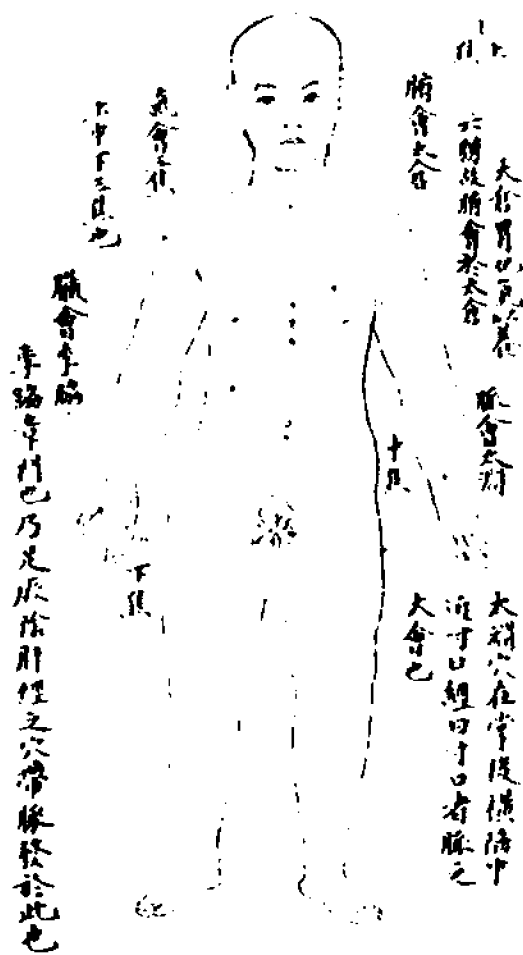 上焦
太倉胃也以養
六腑故腑會於太倉
腑會太倉
脈會太淵
太淵穴在掌後橫陷中
近寸口經曰寸口者脈之
大會也
中焦
下焦
氣會三焦
上中下三焦也
臟會季脇
季脇章門也乃足厥陰肝經之穴帶脈發於此也